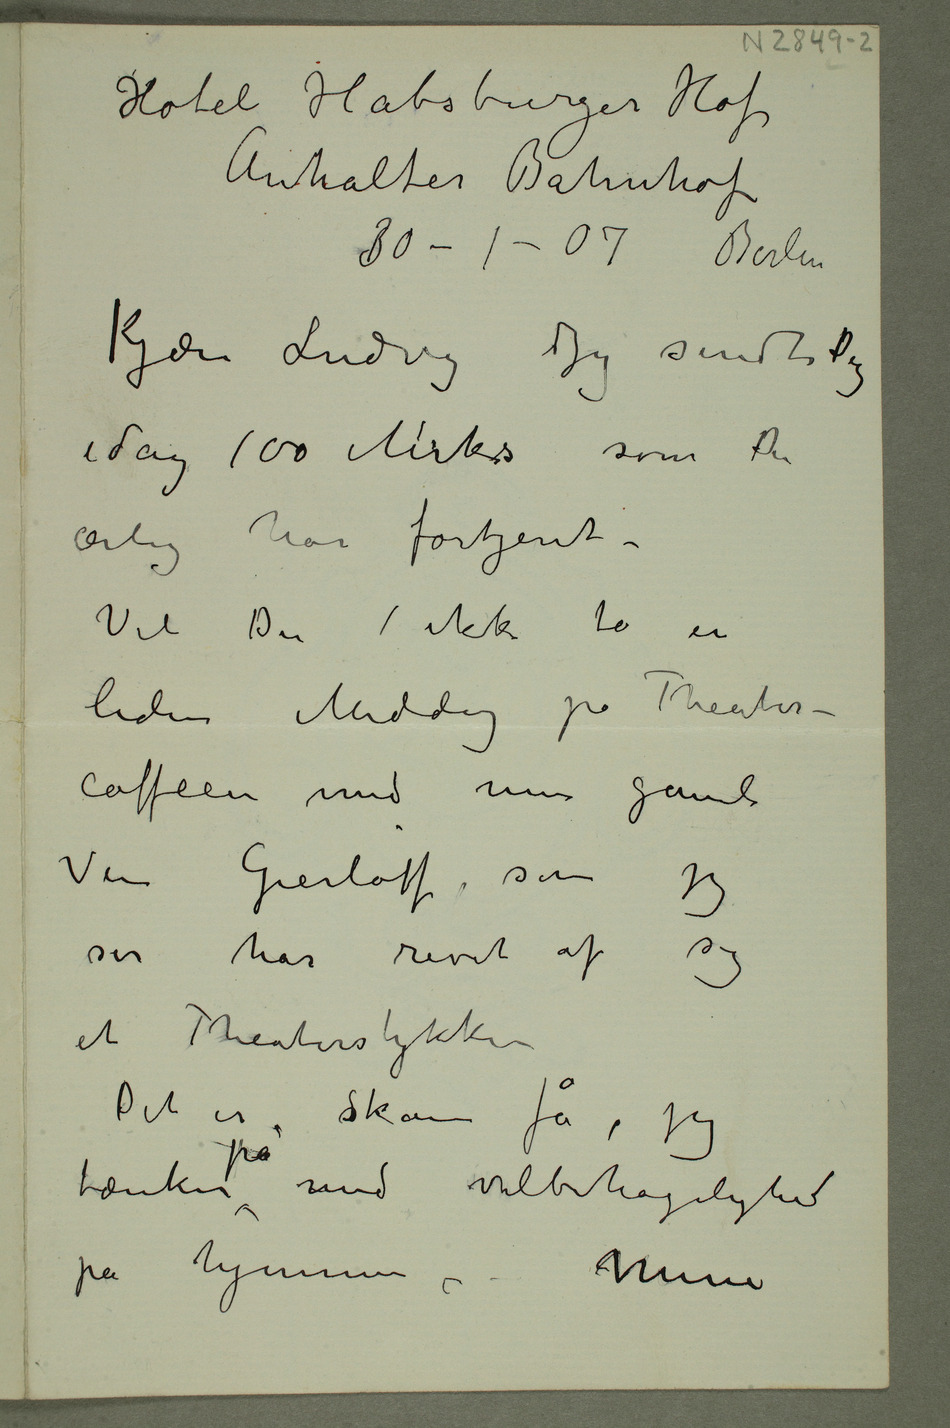 N 2849-2
Hotel Habsburger Hof
Anhalter Bahnhof
30 – 1 – 07 Berlin
Kjære Ludvig Jeg sendte Dig
idag 100 Mrks som Du
ærlig har fortjent –
Vil Du ikke ta en
liden Middag på Theater–
caffeen med min gamle
Ven Gierløff, som jeg
ser har revet af sig
et Theaterstykke –
Det er, skam få, jeg
på
tænker med velbehagelighed
på hjemme –
Mine